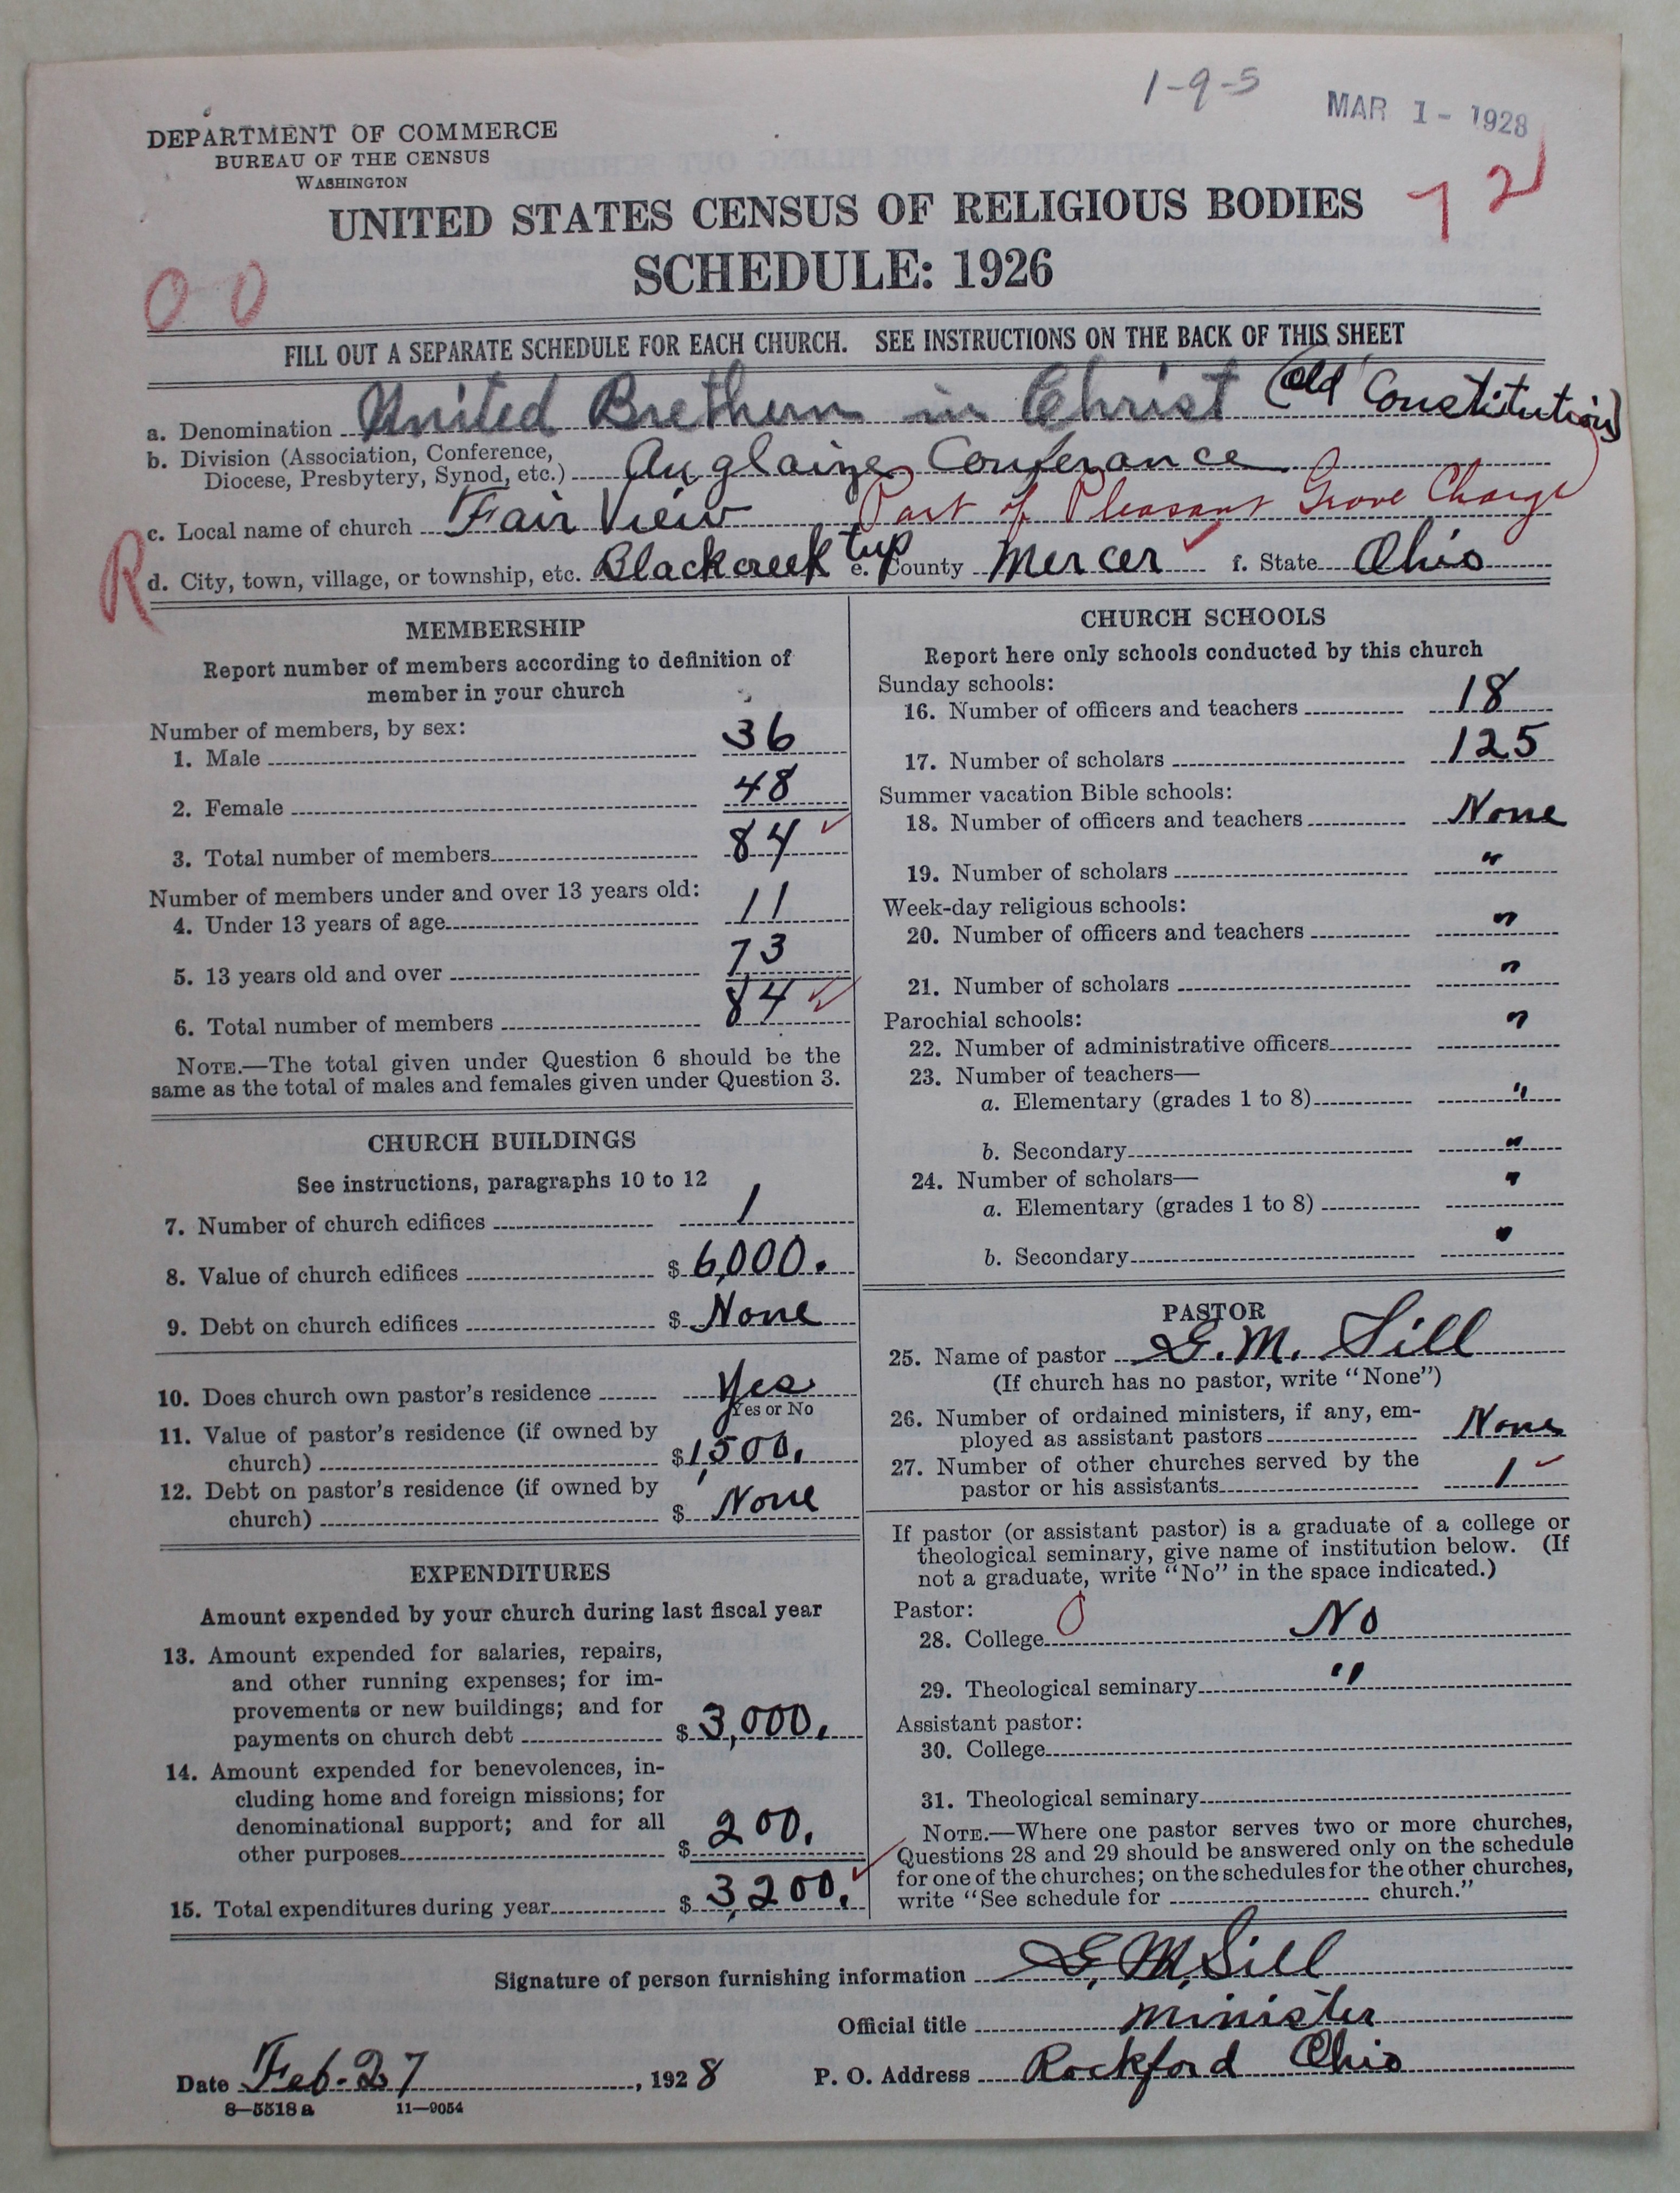 1-9-5
MAR 1 - 1928
DEPARTMENT OF COMMERCE
BUREAU OF THE CENSUS
WASHINGTON
72
UNITED STATES CENSUS OF RELIGIOUS BODIES
SCHEDULE: 1926
00
FILL OUT A SEPARATE SCHEDULE FOR EACH CHURCH. SEE INSTRUCTIONS ON THE BACK OF THIS SHEET
a. Denomination United Brethern in Christ (Old Constitution)
b. Division (Association, Conference,
Diocese, Presbytery, Synod, etc.) Auglaize Conferance
c. Local name of church Fair View Part of Pleasant Grove Charge
R
d. City, town, village, or township, etc. Blackcreek twp e. County Mercer f. State Ohio
MEMBERSHIP
Report number of members according to definition of
member in your church
Number of members, by sex:
1. Male 36
2. Female 48
3. Total number of members 84
Number of members under and over 13 years old:
4. Under 13 years of age 11
5. 13 years old and over 73
6. Total number of members 84
NOTE.—The total given under Question 6 should be the
same as the total of males and females given under Question 3.
CHURCH BUILDINGS
See instructions, paragraphs 10 to 12
7. Number of church edifices 1
8. Value of church edifices $ 6,000.
9. Debt on church edifices $ None
10. Does church own pastor's residence Yes
Yes or No
11. Value of pastor's residence (if owned by
church) $ 1,500.
12. Debt on pastor's residence (if owned by
church) $ None
EXPENDITURES
Amount expended by your church during last fiscal year
13. Amount expended for salaries, repairs,
and other running expenses; for im-
provements or new buildings; and for
payments on church debt $ 3,000.
14. Amount expended for benevolences, in-
cluding home and foreign missions; for
denominational support; and for all
other purposes $ 200.
15. Total expenditures during year $ 3,200.
CHURCH SCHOOLS
Report here only schools conducted by this church
Sunday schools:
16. Number of officers and teachers 18
17. Number of scholars 125
Summer vacation Bible schools:
18. Number of officers and teachers None
19. Number of scholars "
Week-day religious schools:
20. Number of officers and teachers "
21. Number of scholars "
Parochial schools:
22. Number of administrative officers "
23. Number of teachers—
a. Elementary (grades 1 to 8) "
b. Secondary "
24. Number of scholars—
a. Elementary (grades 1 to 8) "
b. Secondary "
PASTOR
25. Name of pastor G. M. Sill
(If church has no pastor, write "None")
26. Number of ordained ministers, if any, em-
ployed as assistant pastors None
27. Number of other churches served by the
pastor or his assistants 1
If pastor (or assistant pastor) is a graduate of a college or
theological seminary, give name of institution below. (If
not a graduate, write "No" in the space indicated.)
Pastor:
28. College 0 No
29. Theological seminary "
Assistant pastor:
30. College
31. Theological seminary
NOTE.—Where one pastor serves two or more churches,
Questions 28 and 29 should be answered only on the schedule
for one of the churches; on the schedules for the other churches,
write "See schedule for church."
Signature of person furnishing information G. M. Sill
Official title minister
Date Feb. 27, 1928 P. O. Address Rockford Ohio
8—5518 a 11—9054